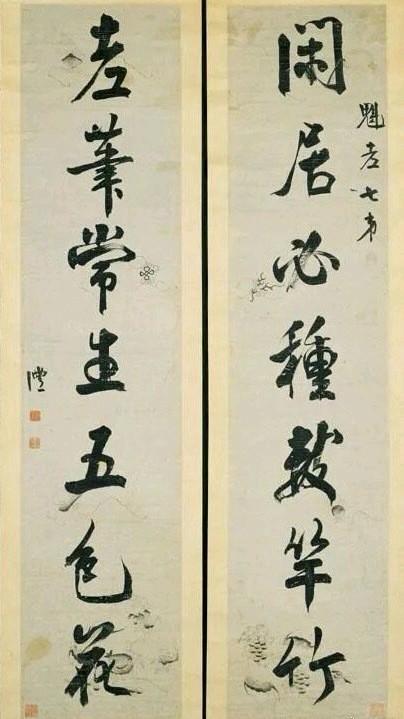 魁老七弟
閑居必種數竿竹
老筆常生五色花
澧